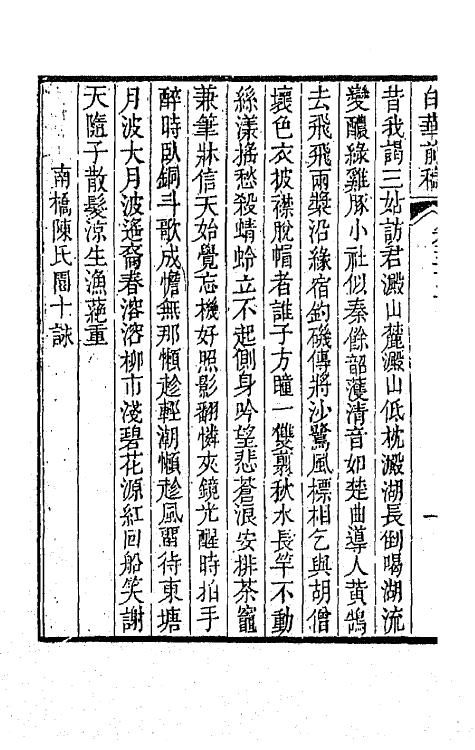 白華前稿
昔我謁三姑訪君澱山麓澱山低枕澱湖長倒喝湖流
變醲綠雞豚小社似秦餘韶頀清音如楚曲導人黃鵠
去飛飛兩槳沿緣宿釣磯傳將沙鷺風標相乞與胡僧
壞色衣披襟脫帽者誰子方瞳一雙翦秋水長竿不動
絲漾搖愁殺蜻蛉立不起側身吟望悲蒼浪安排茶竈
兼筆牀信天始覺忘機好照影翻憐夾鏡光醒時拍手
醉時臥銅斗歌成憺無那懶趁輕潮懶趁風畱待東塘
月波大月波遙裔春溶溶柳市淺碧花源紅回船笑謝
天隨子散髮涼生漁蓑重
南橋陳氏園十詠
一